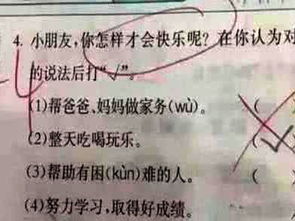 4. 小朋友,你怎样才会快乐呢?在你认为对
的说法后打“√”。
(1)帮爸爸、妈妈做家务(wù)。 (
(2)整天吃喝玩乐。 (
(3)帮助有困(kùn)难的人。 (
(4)努力学习,取得好成绩。